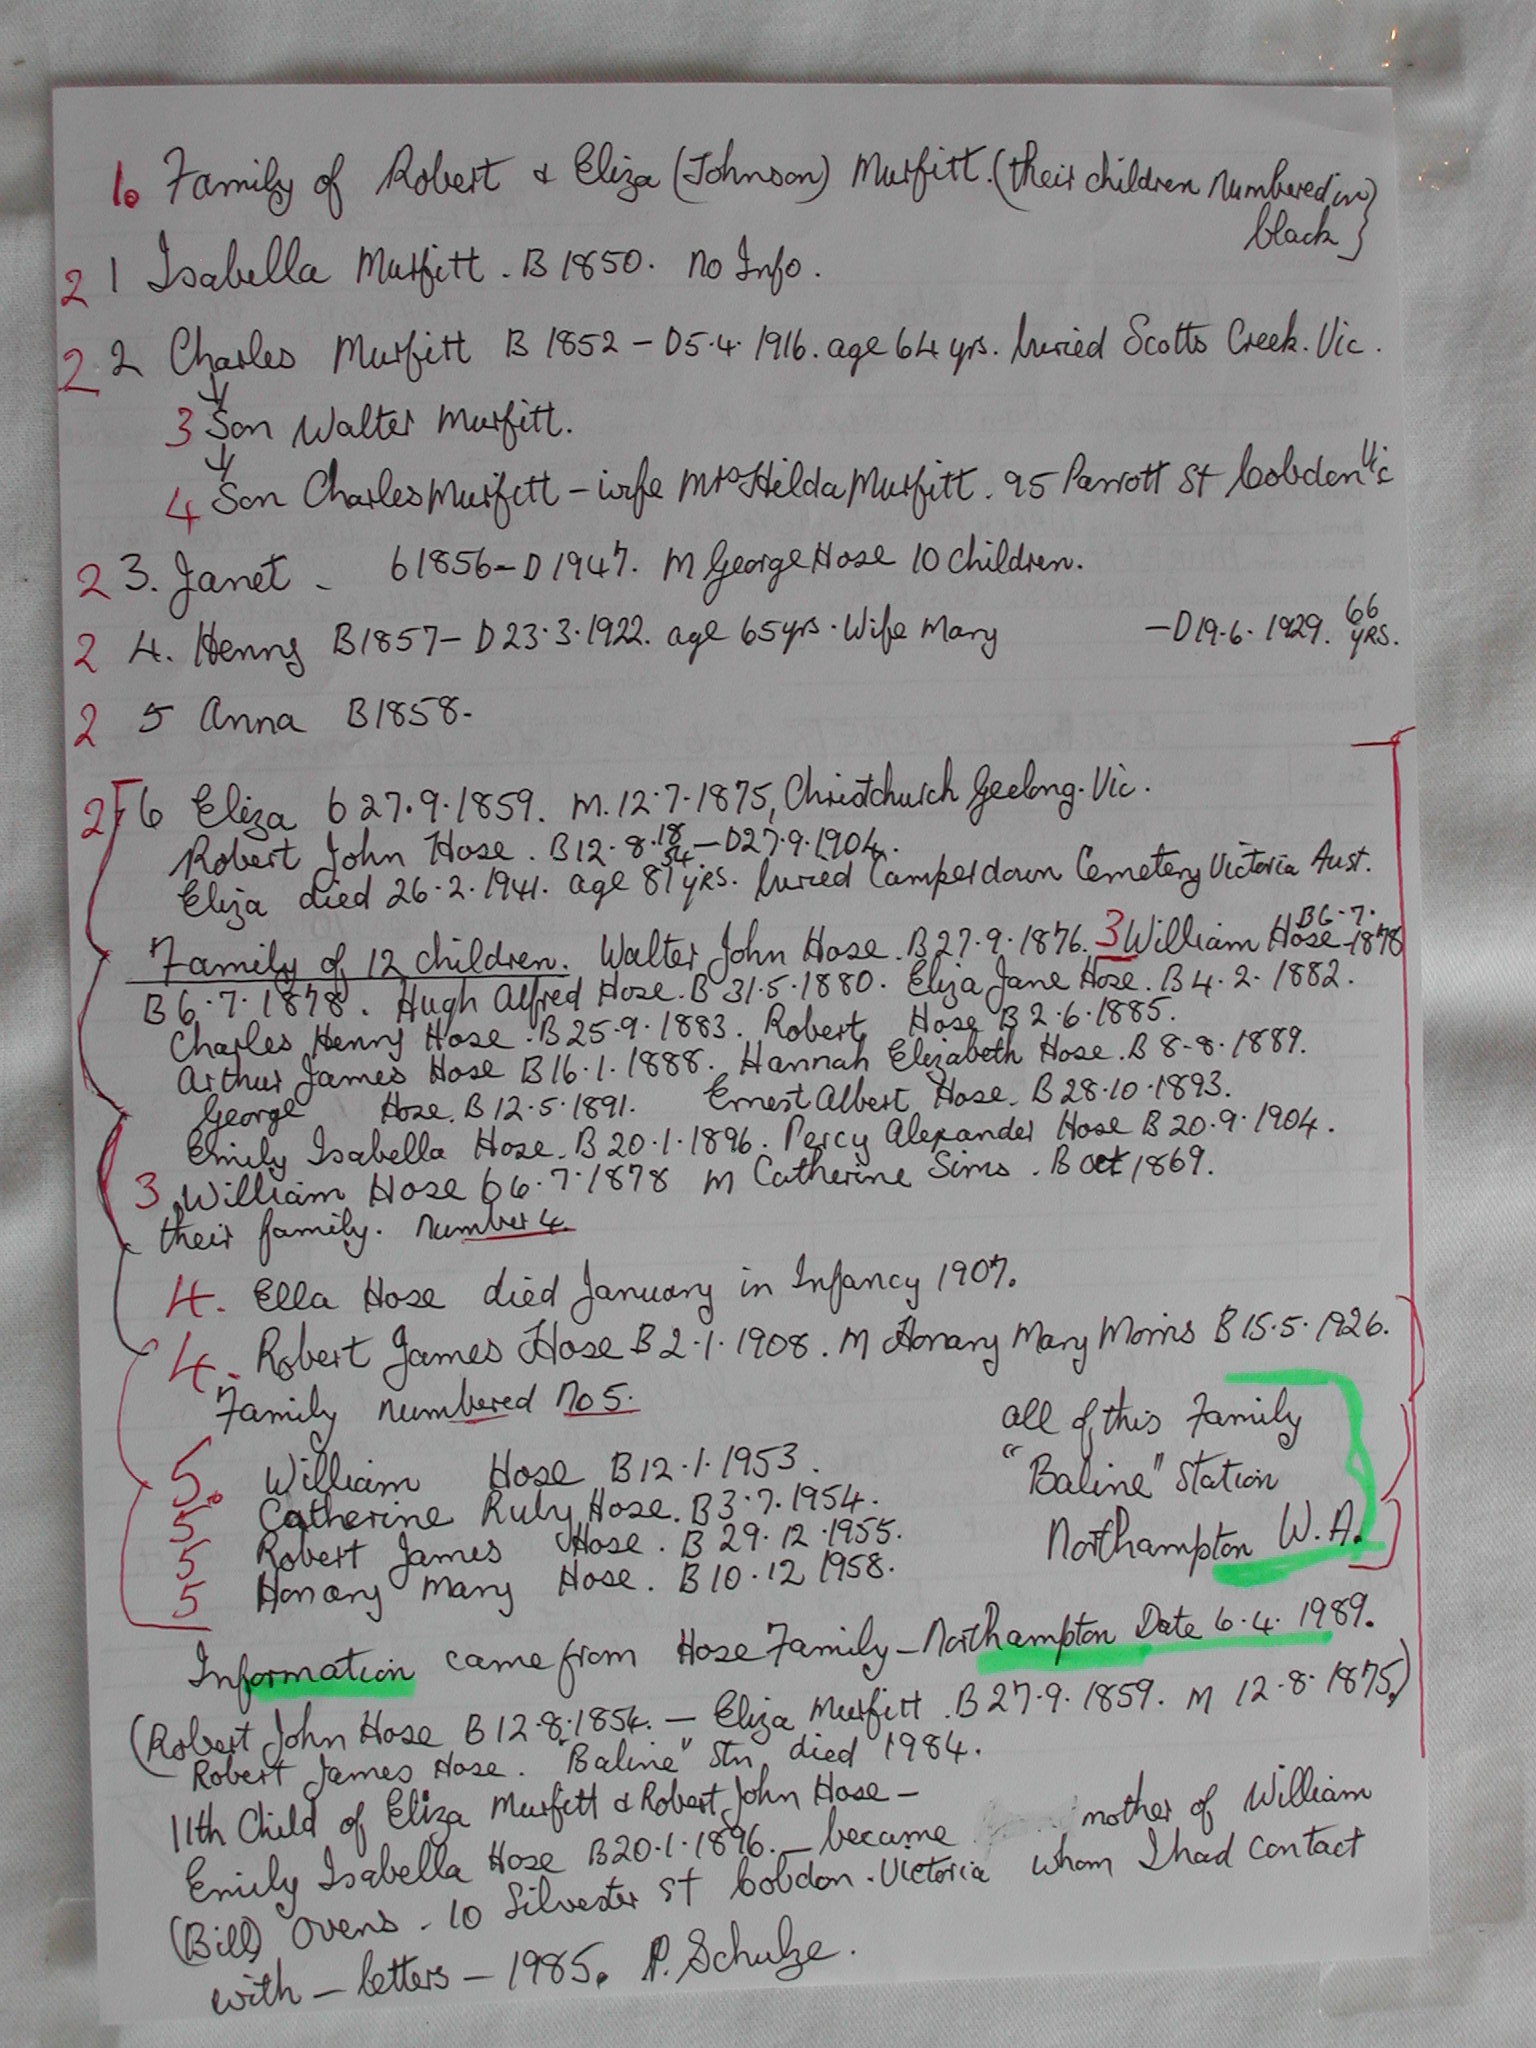 1. Family of Robert & Eliza (Johnson) Murfitt. (their children numbered in
black}
2 1 Isabella Murfitt. B 1850. no Info.
2 2 Charles Murfitt B 1852 - D5.4.1916. age 64 yrs. buried Scotts Creek. Vic.
3 Son Walter Murfitt.
4 Son Charles Murfitt - wife Mrs Hilda Murfitt. 95 Parrott St Cobden Vic
2 3. Janet - b1856 - D1947. M George Hose 10 children.
2 4. Henry B1857 - D23.3.1922. age 65yrs. Wife Mary - D19.6.1929. 66 YRS.
2 5 Anna B1858-
2 6 Eliza b 27.9.1859. M. 12.7.1875, Christchurch Geelong. Vic.
Robert John Hose. B12.8.1854 - D27.9.1904.
Eliza died 26.2.1941. age 81 YRS. buried Camperdown Cemetery Victoria Aust.
Family of 12 children. Walter John Hose. B27.9.1876. 3 William Hose B6.7.1878
B6.7.1878. Hugh Alfred Hose. B 31.5.1880. Eliza Jane Hose. B4.2.1882.
Charles Henry Hose. B25.9.1883. Robert Hose B 2.6.1885.
Arthur James Hose B16.1.1888. Hannah Elizabeth Hose. B 8-8.1889.
George Hose. B12.5.1891. Ernest Albert Hose. B28.10.1893.
Emily Isabella Hose. B20.1.1896. Percy Alexander Hose B20.9.1904.
3 William Hose b6.7.1878 M Catherine Sims. B Oct 1869.
their family. number 4.
4. Ella Hose died January in Infancy 1907.
4. Robert James Hose B2.1.1908. M Honary Mary Morris B15.5.1926.
Family numbered No 5. all of this Family
5. William Hose B12.1.1953. "Baline" Station
5 Catherine Ruby Hose. B3.7.1954.
5 Robert James Hose. B 29.12.1955. Northampton W.A.
5 Honary Mary Hose. B10.12 1958.
Information came from Hose Family - Northampton Date 6.4.1989.
(Robert John Hose B12.8.1854. - Eliza Murfitt. B27.9.1859. M 12.8.1875.)
Robert James Hose. "Baline" Stn died 1984.
11th Child of Eliza Murfitt & Robert John Hose -
Emily Isabella Hose B20.1.1896. - became mother of William
(Bill) Ovens - 10 Silvester St Cobdon. Victoria whom I had contact
with - letters - 1985. P. Schulze.